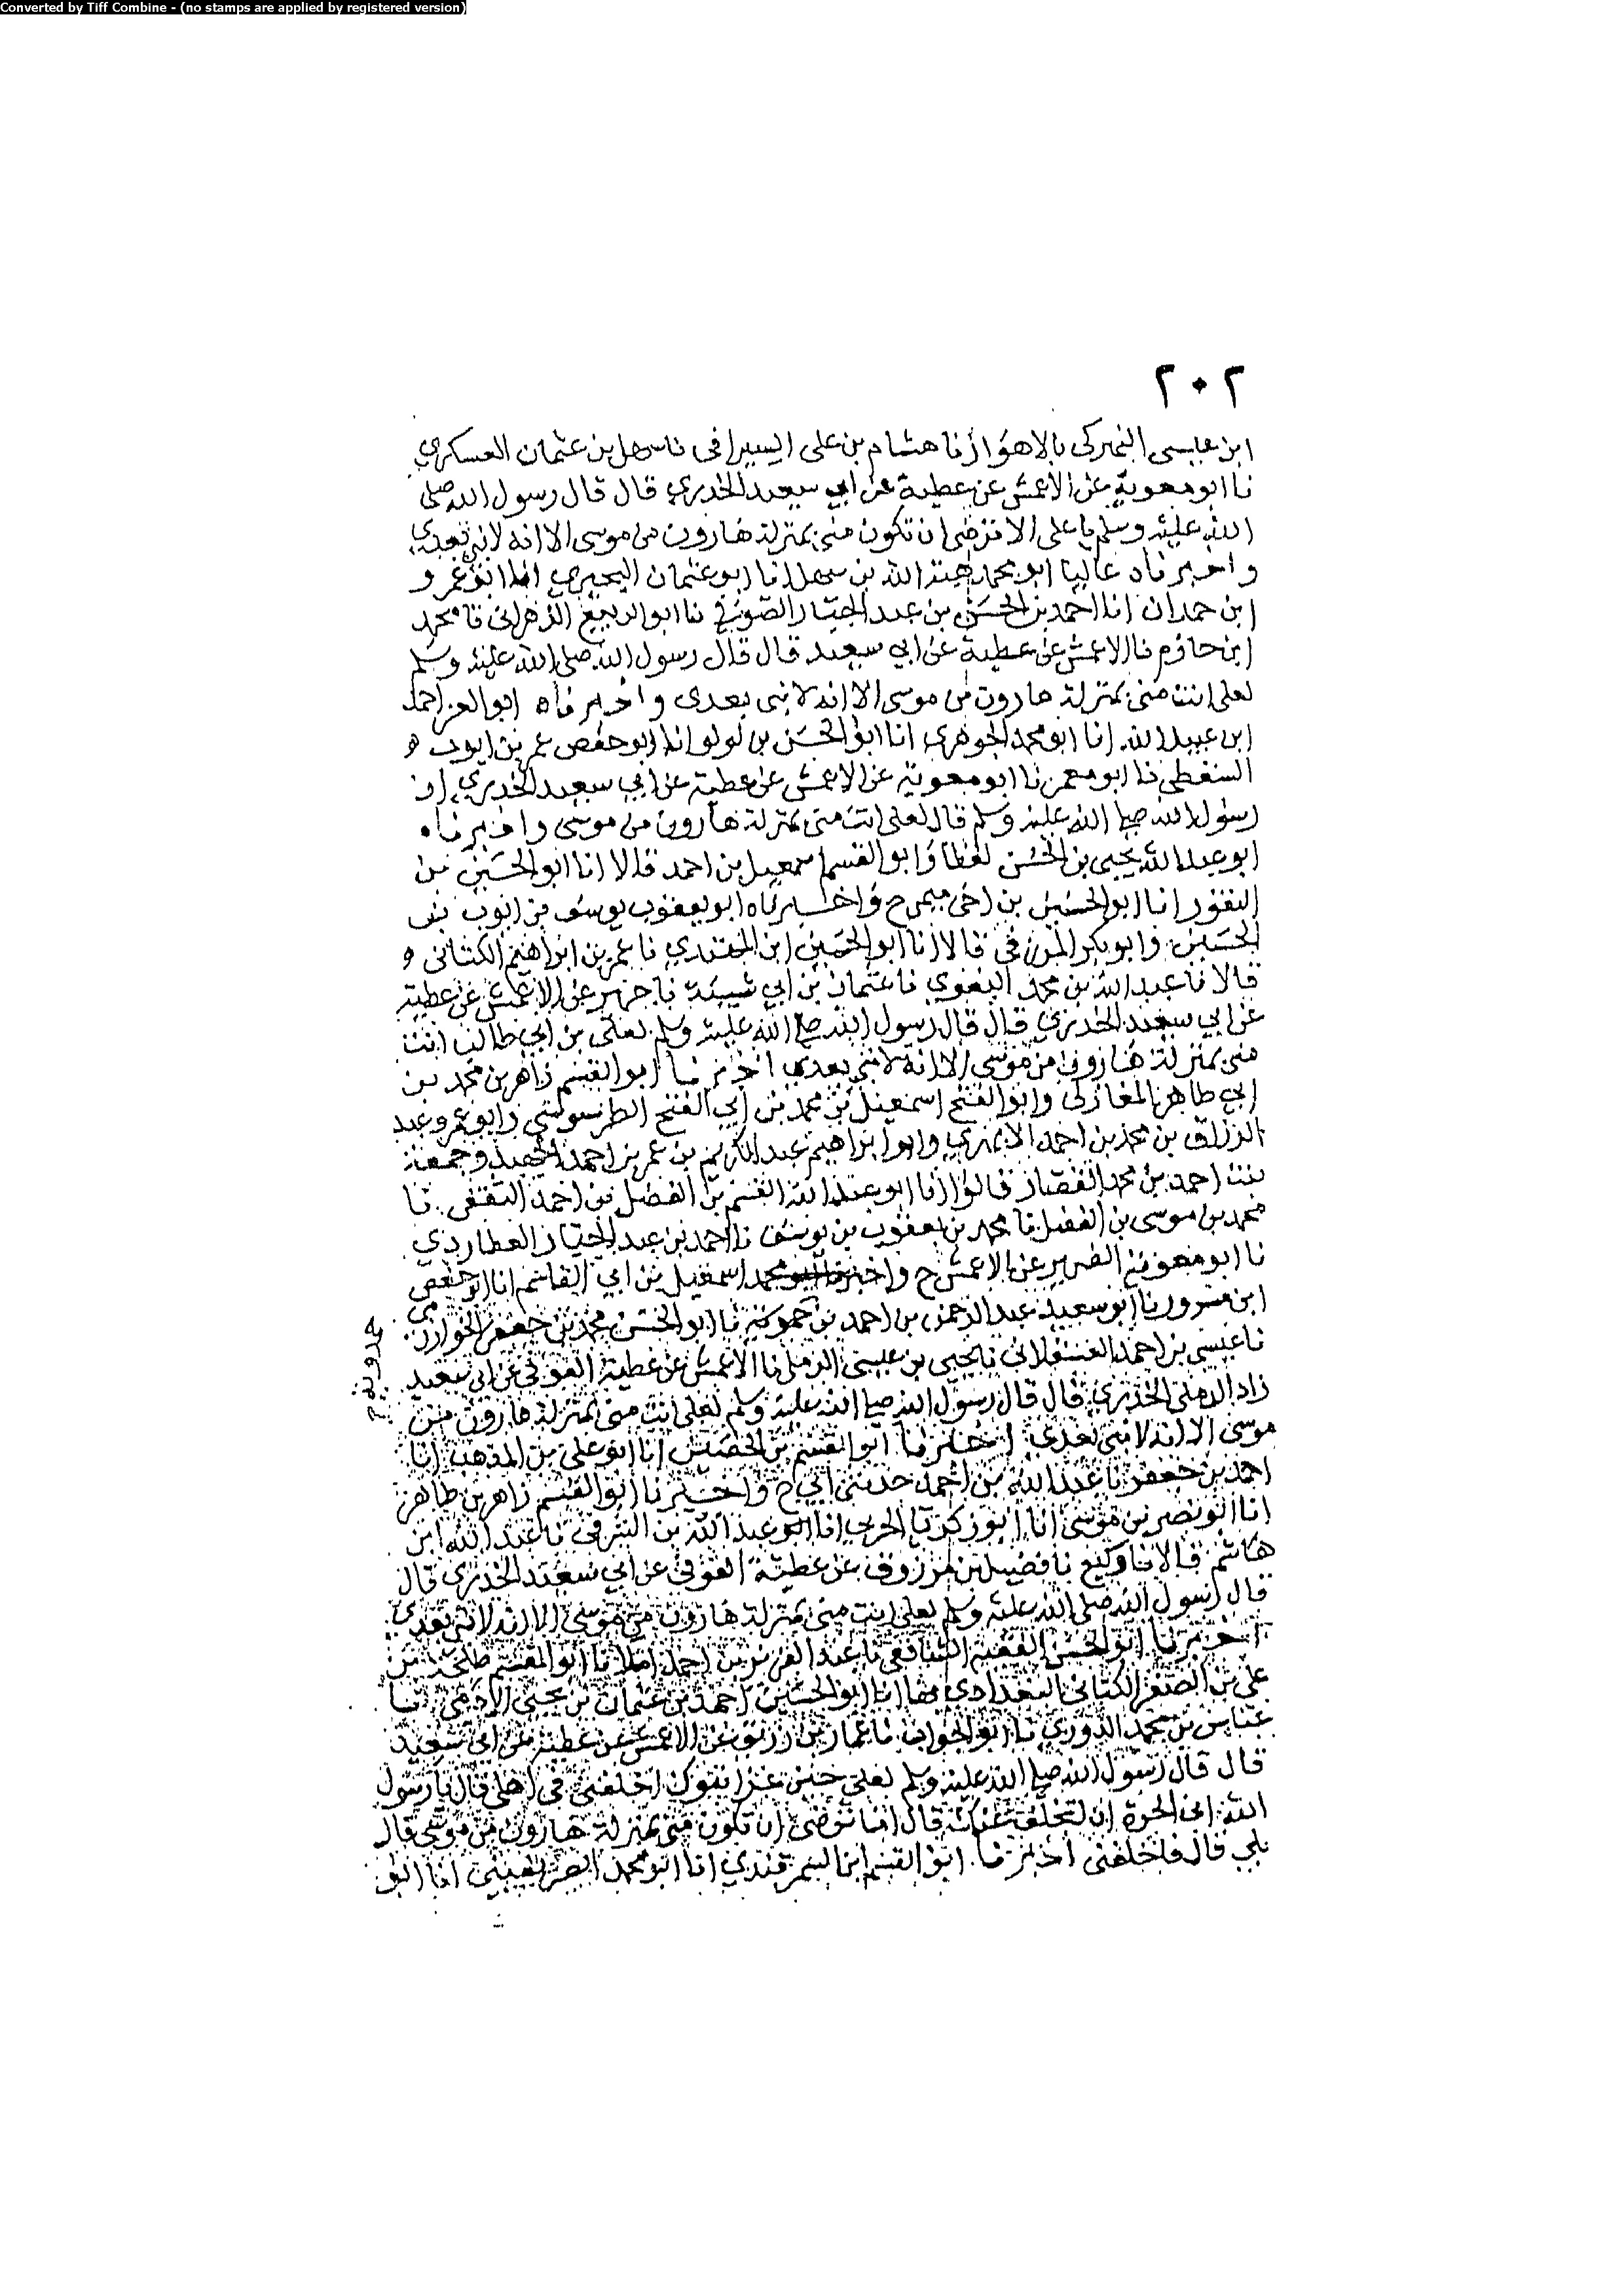 Converted by Tiff Combine - (no stamps are applied by registered version)
٢٠٢
ابن عيسى التمركى بالاهواز نا هشام بن على السيرافى نا سهل بن عثمان العسكري
نا ابو معوية عن الاعمش عن عطية عن ابي سعيد الخدري قال قال رسول الله صلى
الله عليه وسلم يا على الا ترضى ان تكون منى بمنزلة هارون من موسى الا انه لا نبي بعدي
واخبرناه عاليا ابو محمد هبة الله بن سهل انا ابو عثمان البحيري انا ابو عمرو
ابن حمدان انا احمد بن الحسن بن عبد الجبار الصوفي نا ابو الربيع الزهراني نا محمد
ابن حازم نا الاعمش عن عطية عن ابي سعيد قال قال رسول الله صلى الله عليه وسلم
لعلى انت منى بمنزلة هارون من موسى الا انه لا نبى بعدى واخبرناه ابو العز احمد
ابن عبيد الله انا ابو محمد الجوهري انا ابو الحسن بن لولو انا ابو حفص عمر بن ايوب
السقطى نا ابو معمر نا ابو معوية عن الاعمش عن عطية عن ابي سعيد الخدري ان
رسول الله صلى الله عليه وسلم قال لعلى انت منى بمنزلة هارون من موسى واخبرناه
ابو عبد الله يحيى بن الحسن لفظا وابو القسم اسمعيل بن احمد قالا انا ابو الحسين بن
النقور انا ابو الحسين بن اخى ميمى ح واخبرناه ابو يعقوب يوسف بن ايوب بن
الحسين وابو بكر المزرفي قالا انا ابو الحسين ابن المهتدي نا عمر بن ابراهيم الكتانى
قالا نا عبد الله بن محمد البغوي نا عثمان بن ابي شيبة نا جرير عن الاعمش عن عطية
عن ابي سعيد الخدري قال قال رسول الله صلى الله عليه وسلم لعلى بن ابي طالب انت
منى بمنزلة هارون من موسى الا انه لا نبى بعدي اخبرنا ابو القسم زاهر بن محمد بن
ابي طاهر المغازلى وابو الفتح اسمعيل بن محمد بن ابي الفتح الطرسوسي وابو عمرو عبد
الرزاق بن محمد بن احمد الابهري وابو ابراهيم عبد الكريم بن عمر بن احمد وجمعة
بنت احمد بن محمد القصار قالوا انا ابو عبد الله القسم بن الفضل بن احمد الثقفى نا
محمد بن موسى بن الفضل نا محمد بن يعقوب بن يوسف نا احمد بن عبد الجبار العطاردي
نا ابو معوية الضرير عن الاعمش ح واخبرنا ابو محمد اسمعيل بن ابي القاسم انا ابو حفص
ابن مسرور نا ابو سعيد عبد الرحمن بن احمد بن حمويه نا ابو الحسن محمد بن جعفر الخوارزمى
نا عيسى بن احمد العسقلاني نا يحيى بن عيسى الرملى نا الاعمش عن عطية العوفي عن ابي سعيد
زاد الرملى الخدري قال قال رسول الله صلى الله عليه وسلم لعلى انت منى بمنزلة هارون من
موسى الا انه لا نبى بعدي اخبرنا ابو القسم بن الحصين انا ابو على بن المذهب انا
احمد بن جعفر نا عبد الله بن احمد حدثنى ابي ح واخبرنا ابو القسم زاهر بن طاهر
انا ابو نصر بن موسى انا ابو زكريا الحربي انا ابو عبد الله بن الشرقى نا عبد الله ابن
هاشم قالا نا وكيع نا فضيل بن مرزوق عن عطية العوفي عن ابي سعيد الخدري قال
قال رسول الله صلى الله عليه وسلم لعلى انت منى بمنزلة هارون من موسى الا انه لا نبى بعدي
اخبرنا ابو الحسن الفقيه الشافعى نا عبد العزيز بن احمد املا نا ابو القسم طلحة بن
على بن الصقر الكتاني البغدادي بها انا ابو الحسين احمد بن عثمان بن يحيى الادمى نا
عباس بن محمد الدوري نا ابو الجواب نا عمار بن رزيق عن الاعمش عن عطية عن ابي سعيد
قال قال رسول الله صلى الله عليه وسلم لعلى حين غزا تبوك اخلفنى في اهلى قال يا رسول
الله انى اكره ان اتخلف عنك قال اما ترضى ان تكون منى بمنزلة هارون من موسى قال
بلى قال فاخلفنى اخبرنا ابو القسم ابن السمرقندي انا ابو محمد الصريفيني انا ابو